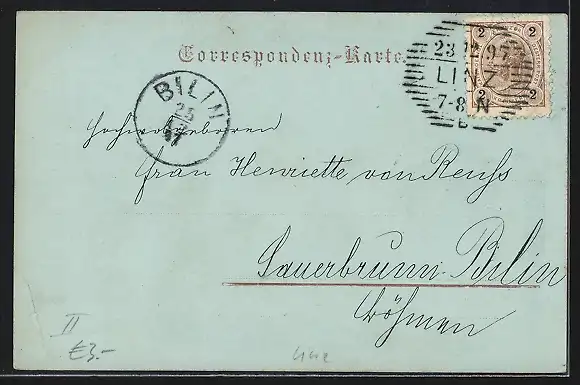 Correspondenz-Karte.
2 2
2 2
23.12.97
LINZ
7-8 N
B
BILIN
Hochwohlgeboren
Frau Henriette von Reuss
Sauerbrunn-Bilin
Böhmen
II
€3.-